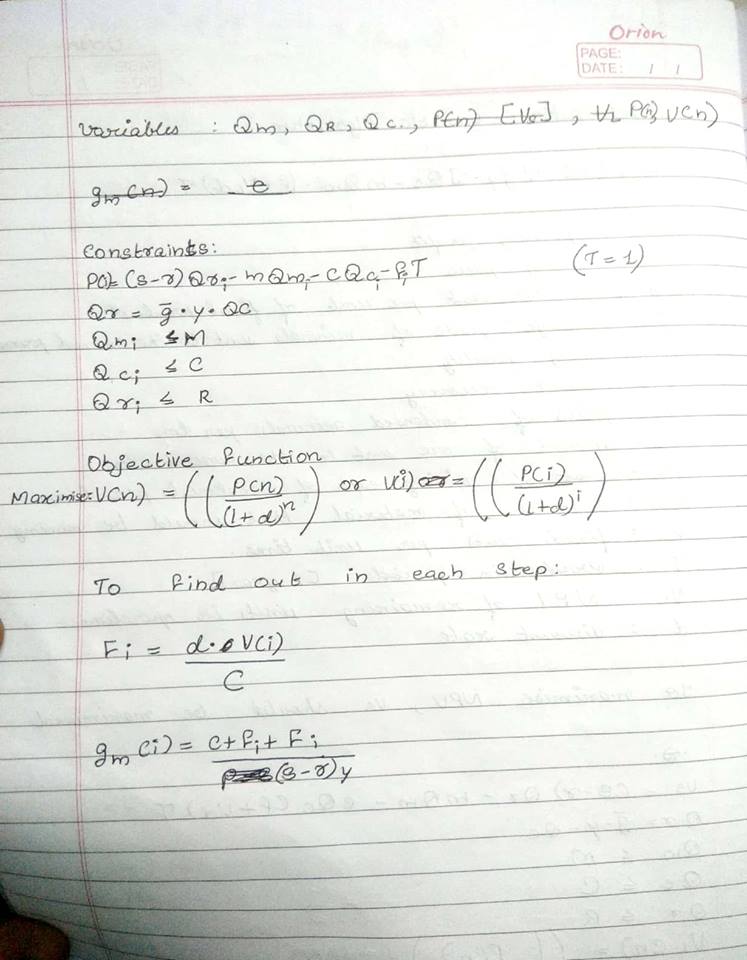 Orion
PAGE:
DATE: / /
Variables : Qm, QR, Qc., P(n) [Vo], V2 P(n), V(n)
gm(n) = e
Constraints:
P(i)= (s-r) Qri - m Qmi - c Qci - fiT (T=1)
Qr = g̅ . y . QC
Qmi ≤ M
Qci ≤ C
Qri ≤ R
Objective function
Maximise: V(n) = ((P(n)/(1+d)^n) or V(i) = ((P(i)/(1+d)^i)
To find out in each step:
Fi = d. V(i)/C
gm(i) = c+fi+Fi/(s-r)y